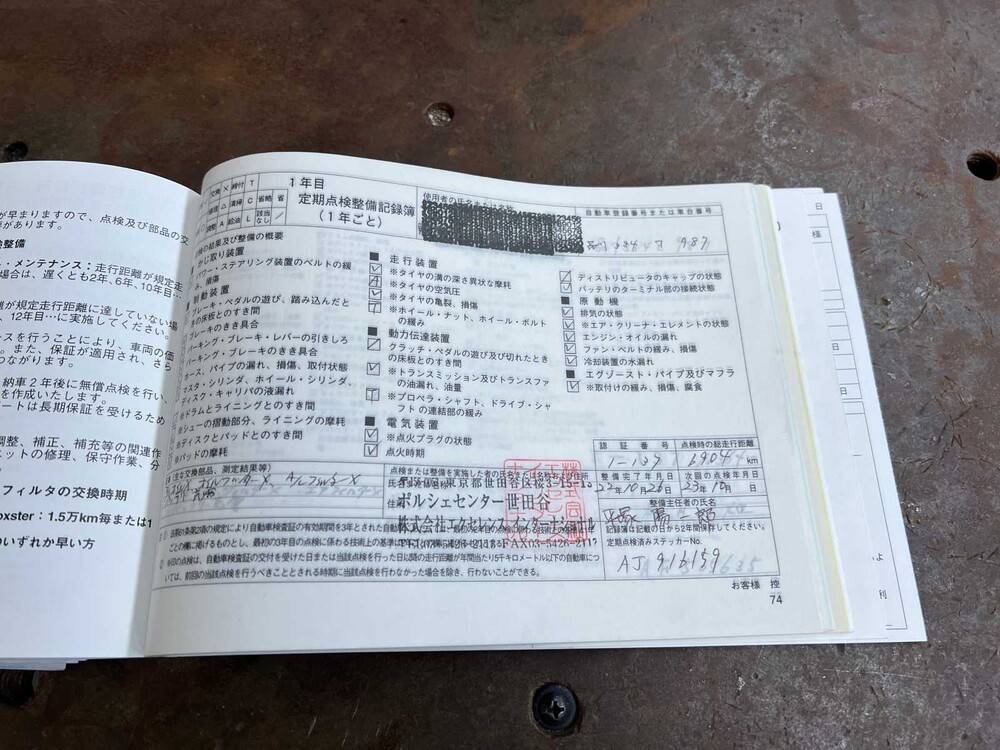 が早まりますので、点検及び部品の交
があります。
検整備
・メンテナンス：走行距離が規定
場合は、遅くとも2年、6年、10年目…
が規定走行距離に達していない場
、12年目…に実施してください。
スを行うことにより、車両の価
。また、保証が適用され、さら
つながります。
納車２年後に無償点検を行い、
を作成いたします。
ートは長期保証を受けるため
調整、補正、補充等の関連作
ニットの修理、保守作業、分
フィルタの交換時期
oxster：1.5万km毎または1
のいずれか早い方
交換 × 締付 T
△ 清掃 C 省略 省
調整 A 給油 L 該当なし ／
1年目
定期点検整備記録簿
（1年ごと）
使用者の氏名または名称
自動車登録番号または車台番号
点検の結果及び整備の概要
かじ取り装置
パワー・ステアリング装置のベルトの緩み、損傷
制動装置
ブレーキ・ペダルの遊び、踏み込んだときの床板とのすき間
ブレーキのきき具合
パーキング・ブレーキ・レバーの引きしろ
パーキング・ブレーキのきき具合
ホース、パイプの漏れ、損傷、取付状態
マスタ・シリンダ、ホイール・シリンダ、
ディスク・キャリパの液漏れ
※ドラムとライニングとのすき間
※シューの摺動部分、ライニングの摩耗
※ディスクとパッドとのすき間
※パッドの摩耗
■ 走行装置
※タイヤの溝の深さ異状な摩耗
※タイヤの空気圧
※タイヤの亀裂、損傷
※ホイール・ナット、ホイール・ボルトの緩み
■ 動力伝達装置
クラッチ・ペダルの遊び及び切れたときの床板とのすき間
※トランスミッション及びトランスファの油漏れ、油量
※プロペラ・シャフト、ドライブ・シャフトの連結部の緩み
■ 電気装置
※点火プラグの状態
点火時期
ディストリビュータのキャップの状態
バッテリのターミナル部の接続状態
■ 原動機
排気の状態
※エア・クリーナ・エレメントの状態
エンジン・オイルの漏れ
ファン・ベルトの緩み、損傷
冷却装置の水漏れ
■ エグゾースト・パイプ及びマフラ
※取付けの緩み、損傷、腐食
認証番号 点検時の総走行距離
km
整備完了年月日 次回の点検年月日
22年10月26日 23年10月 日
整備主任者の氏名
記録簿は記載の日から2年間保存してください。
定期点検済みステッカーNo.
AJ 916159
点検または整備を実施した者の氏名または名称及び住所
東京都世田谷区桜3-15-10
ポルシェセンター世田谷
株式会社エクセレンス インターナショナル
お客様 控
74
日
様
日
よ
刊